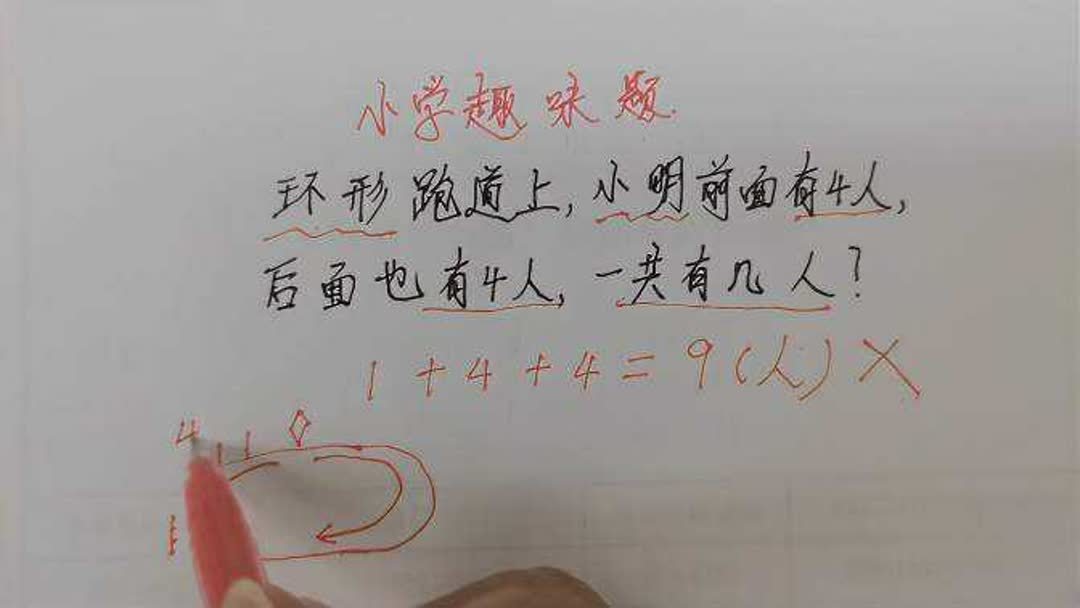 小学趣味题.
环形跑道上,小明前面有4人,
后面也有4人,一共有几人?
1+4+4=9(人)×
4